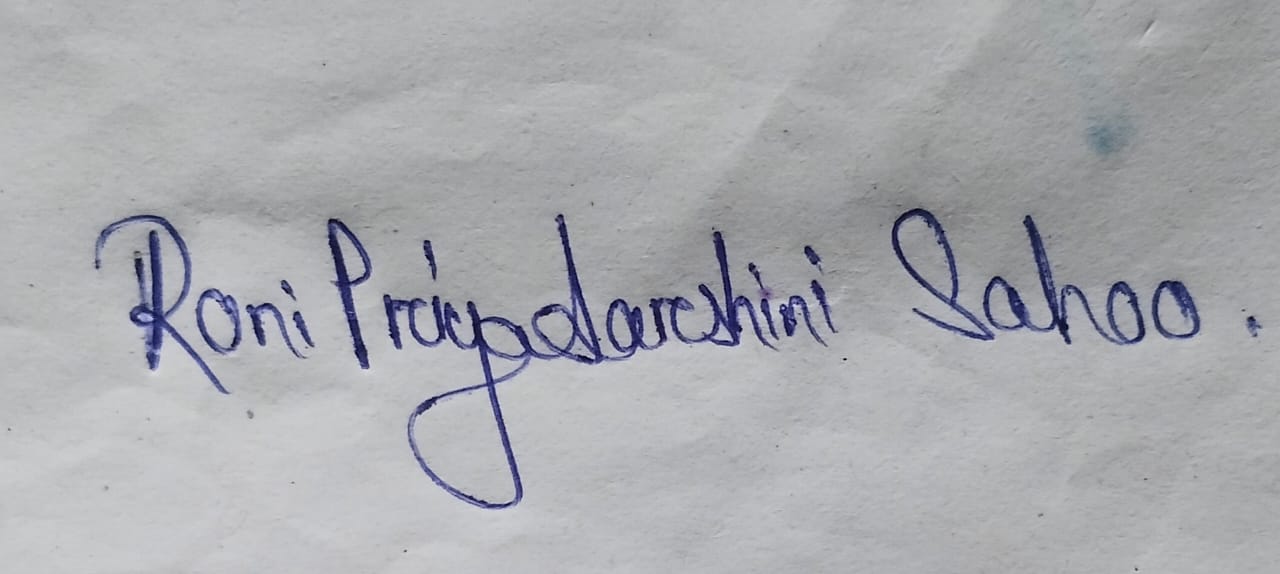 Rani Priyadarshini Sahoo.